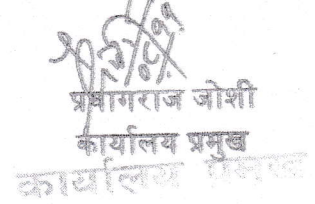 प्रयागराज जोशी
कार्यालय प्रमुख
कार्यालय प्रमुख